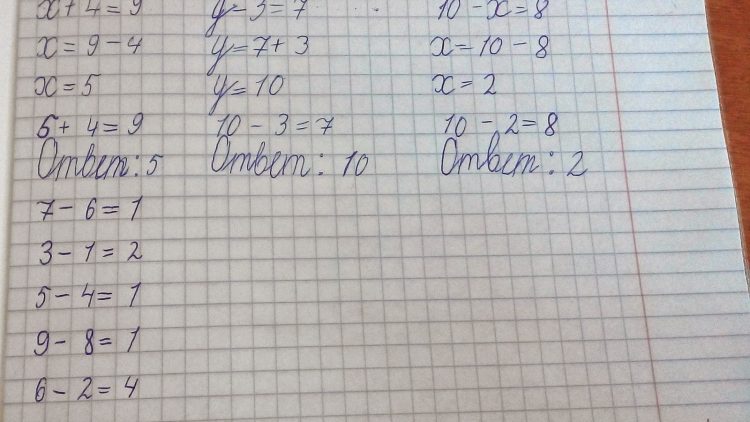 x + 4 = 9 y - 3 = 7 10 - x = 8
x = 9 - 4 y = 7 + 3 x = 10 - 8
x = 5 y = 10 x = 2
5 + 4 = 9 10 - 3 = 7 10 - 2 = 8
Ответ: 5 Ответ: 10 Ответ: 2
7 - 6 = 1
3 - 1 = 2
5 - 4 = 1
9 - 8 = 1
6 - 2 = 4